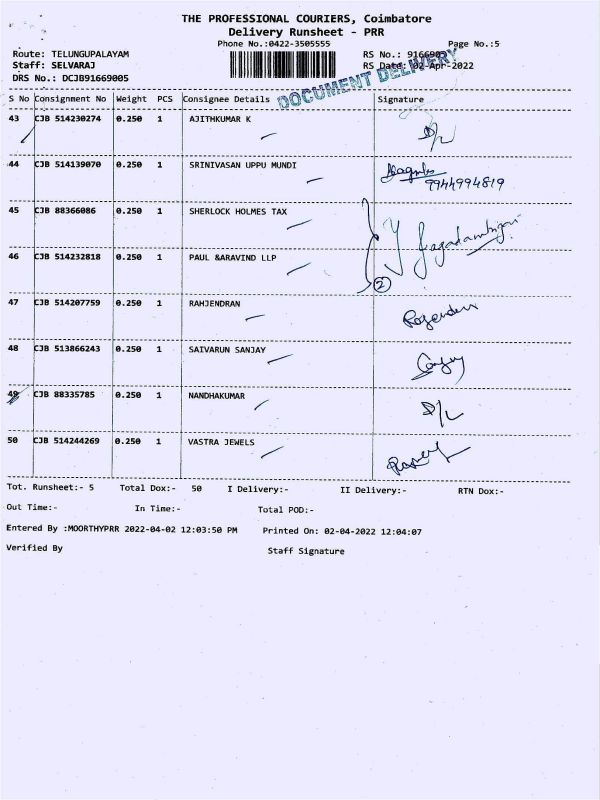 THE PROFESSIONAL COURIERS, Coimbatore
Delivery Runsheet - PRR
Phone No.:0422-3505555
Page No.:5
Route: TELUNGUPALAYAM
RS No.: 9166900
Staff: SELVARAJ
RS Date: 02-Apr-2022
DRS No.: DCJB91669005
DOCUMENT DELIVERY
S No Consignment No Weight PCS Consignee Details Signature
43 CJB 514230274 0.250 1 AJITHKUMAR K D/L
44 CJB 514139070 0.250 1 SRINIVASAN UPPU MUNDI
9944994819
45 CJB 88366086 0.250 1 SHERLOCK HOLMES TAX
46 CJB 514232818 0.250 1 PAUL &ARAVIND LLP
2
47 CJB 514207759 0.250 1 RAHJENDRAN
48 CJB 513866243 0.250 1 SAIVARUN SANJAY
49 CJB 88335785 0.250 1 NANDHAKUMAR D/L
50 CJB 514244269 0.250 1 VASTRA JEWELS
Tot. Runsheet:- 5 Total Dox:- 50 I Delivery:- II Delivery:- RTN Dox:-
Out Time:- In Time:- Total POD:-
Entered By :MOORTHYPRR 2022-04-02 12:03:50 PM Printed On: 02-04-2022 12:04:07
Verified By Staff Signature